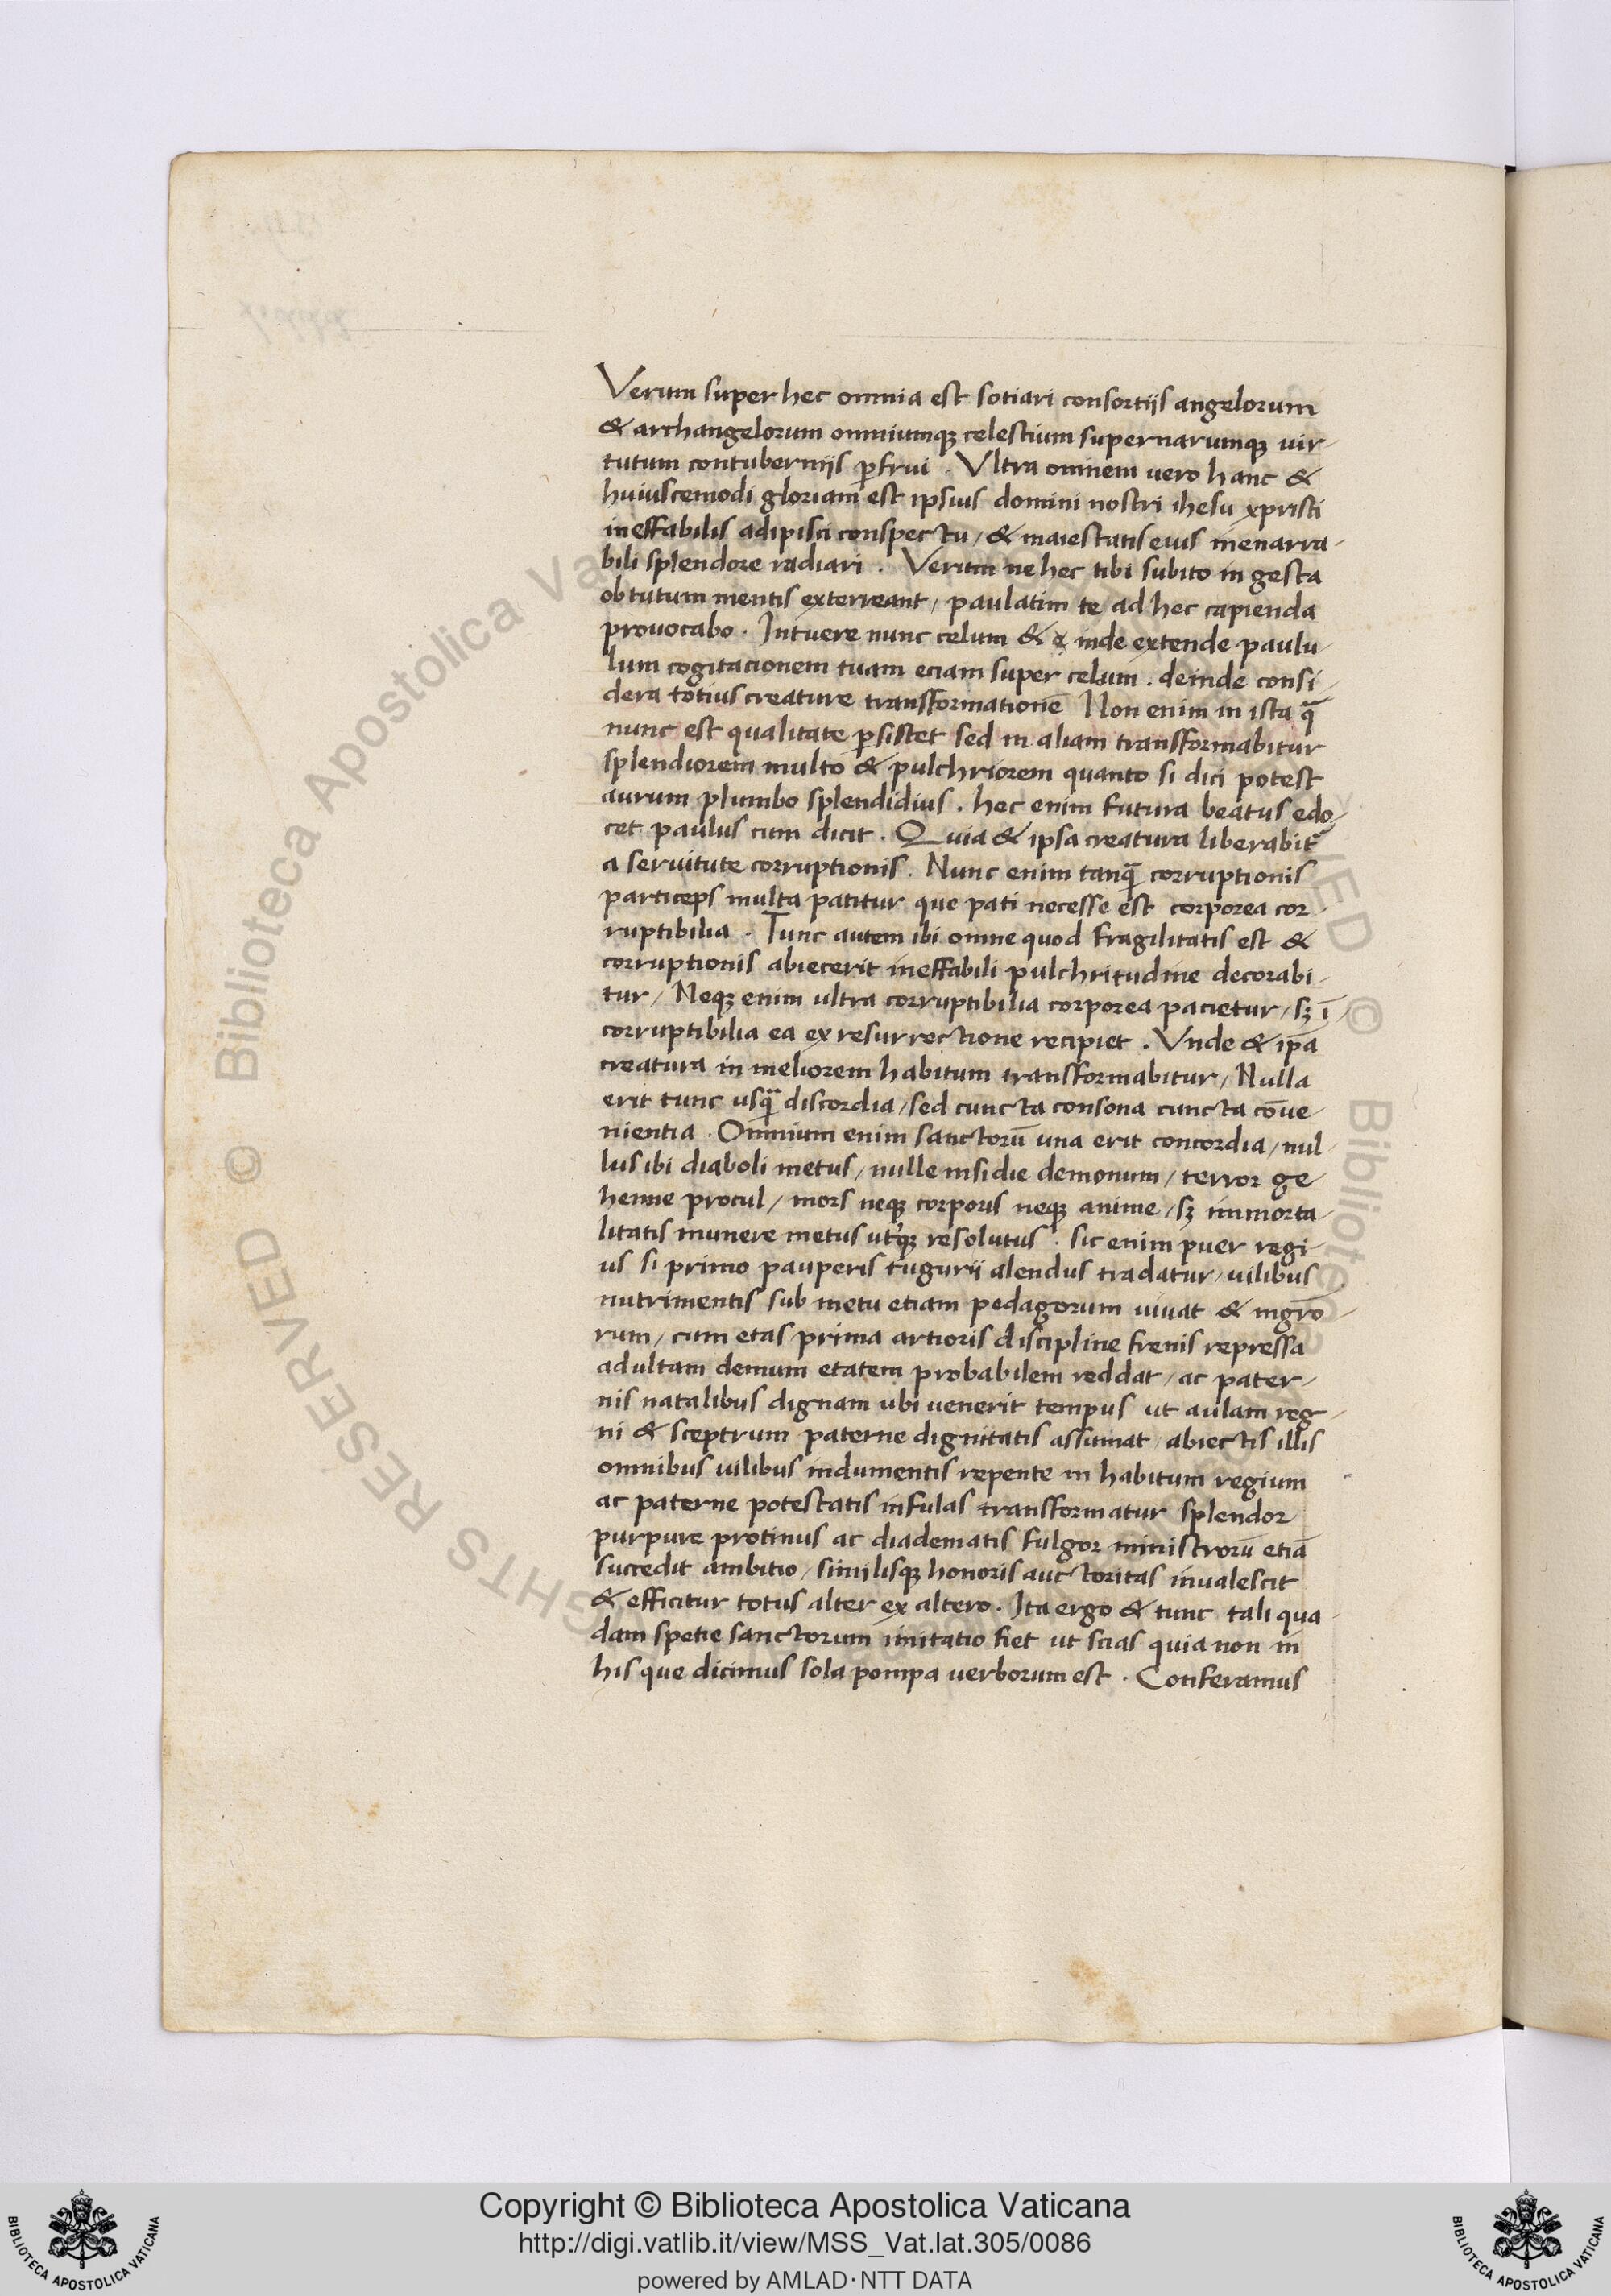 Verum super hec omnia est sotiari consortijs angelorum
& archangelorum omniumqꝫ celestium supernarumqꝫ uir-
tutum contubernijs ꝑfrui . Vltra omnem uero hanc &
huiuscemodi gloriam est ipsius domini nostri ihesu xpristi
ineffabilis adipisci conspectu / & maiestatis eius inenarra-
bili splendore radiari . Verum ne hec tibi subito in gesta
obtutum mentis exterreant / paulatim te ad hec capienda
prouocabo . Intuere nunc celum & inde extende paulu-
lum cogitacionem tuam eciam super celum . deinde consi-
dera totius creature transformationē Non enim in ista q̄
nunc est qualitate ꝑsistet sed in aliam transformabitur
splendiorem multo & pulchriorem quanto si dici potest
aurum plumbo splendidius . hec enim futura beatus edo-
cet paulus cum dicit . Quia & ipsa creatura liberabit᷑
a seruitute corruptionis . Nunc enim tanq̄ corruptionis
particeps multa patitur que pati necesse est corporea cor-
ruptibilia . Tunc autem ibi omne quod fragilitatis est &
corruptionis abiecerit ineffabili pulchritudine decorabi-
tur / Neqꝫ enim ultra corruptibilia corporea pacietur / sꝫ ī-
corruptibilia ea ex resurrectione recipiet . Vnde & ip̄a
creatura in meliorem habitum transformabitur / Nulla
erit tunc usq̄ discordia / sed cuncta consona cuncta cōue-
nientia . Omnium enim sanctorū una erit concordia / nul-
lus ibi diaboli metus / nulle insidie demonum / terror ge-
henne procul / mors neqꝫ corporis neqꝫ anime / sꝫ immorta-
litatis munere metus ut'qꝫ resolutus . sic enim puer regi-
us si primo pauperis tugurij alendus tradatur / uilibus
nutrimentis sub metu etiam pedagorum uiuat & mgr̄o-
rum / cum etas prima artioris discipline frenis repressa
adultam demum etatem probabilem reddat / ac pater-
nis natalibus dignam ubi uenerit tempus ut aulam reg-
ni & sceptrum paterne dignitatis assumat / abiectis illis
omnibus uilibus indumentis repente in habitum regium
ac paterne potestatis infulas transformatur splendor
purpure protinus ac diadematis fulgor ministrorū etiā
succedit ambitio / similisqꝫ honoris auctoritas inualescit
& efficitur totus alter ex altero . Ita ergo & tunc tali qua-
dam spetie sanctorum imitatio fiet ut scias quia non in
his que dicimus sola pompa uerborum est . Conferamus
© Biblioteca Apostolica Va
RESERVED
GHTS
VED © Bibliotec
Copyright © Biblioteca Apostolica Vaticana
http://digi.vatlib.it/view/MSS_Vat.lat.305/0086
powered by AMLAD·NTT DATA
BIBLIOTECA APOSTOLICA VATICANA
BIBLIOTECA APOSTOLICA VATICANA